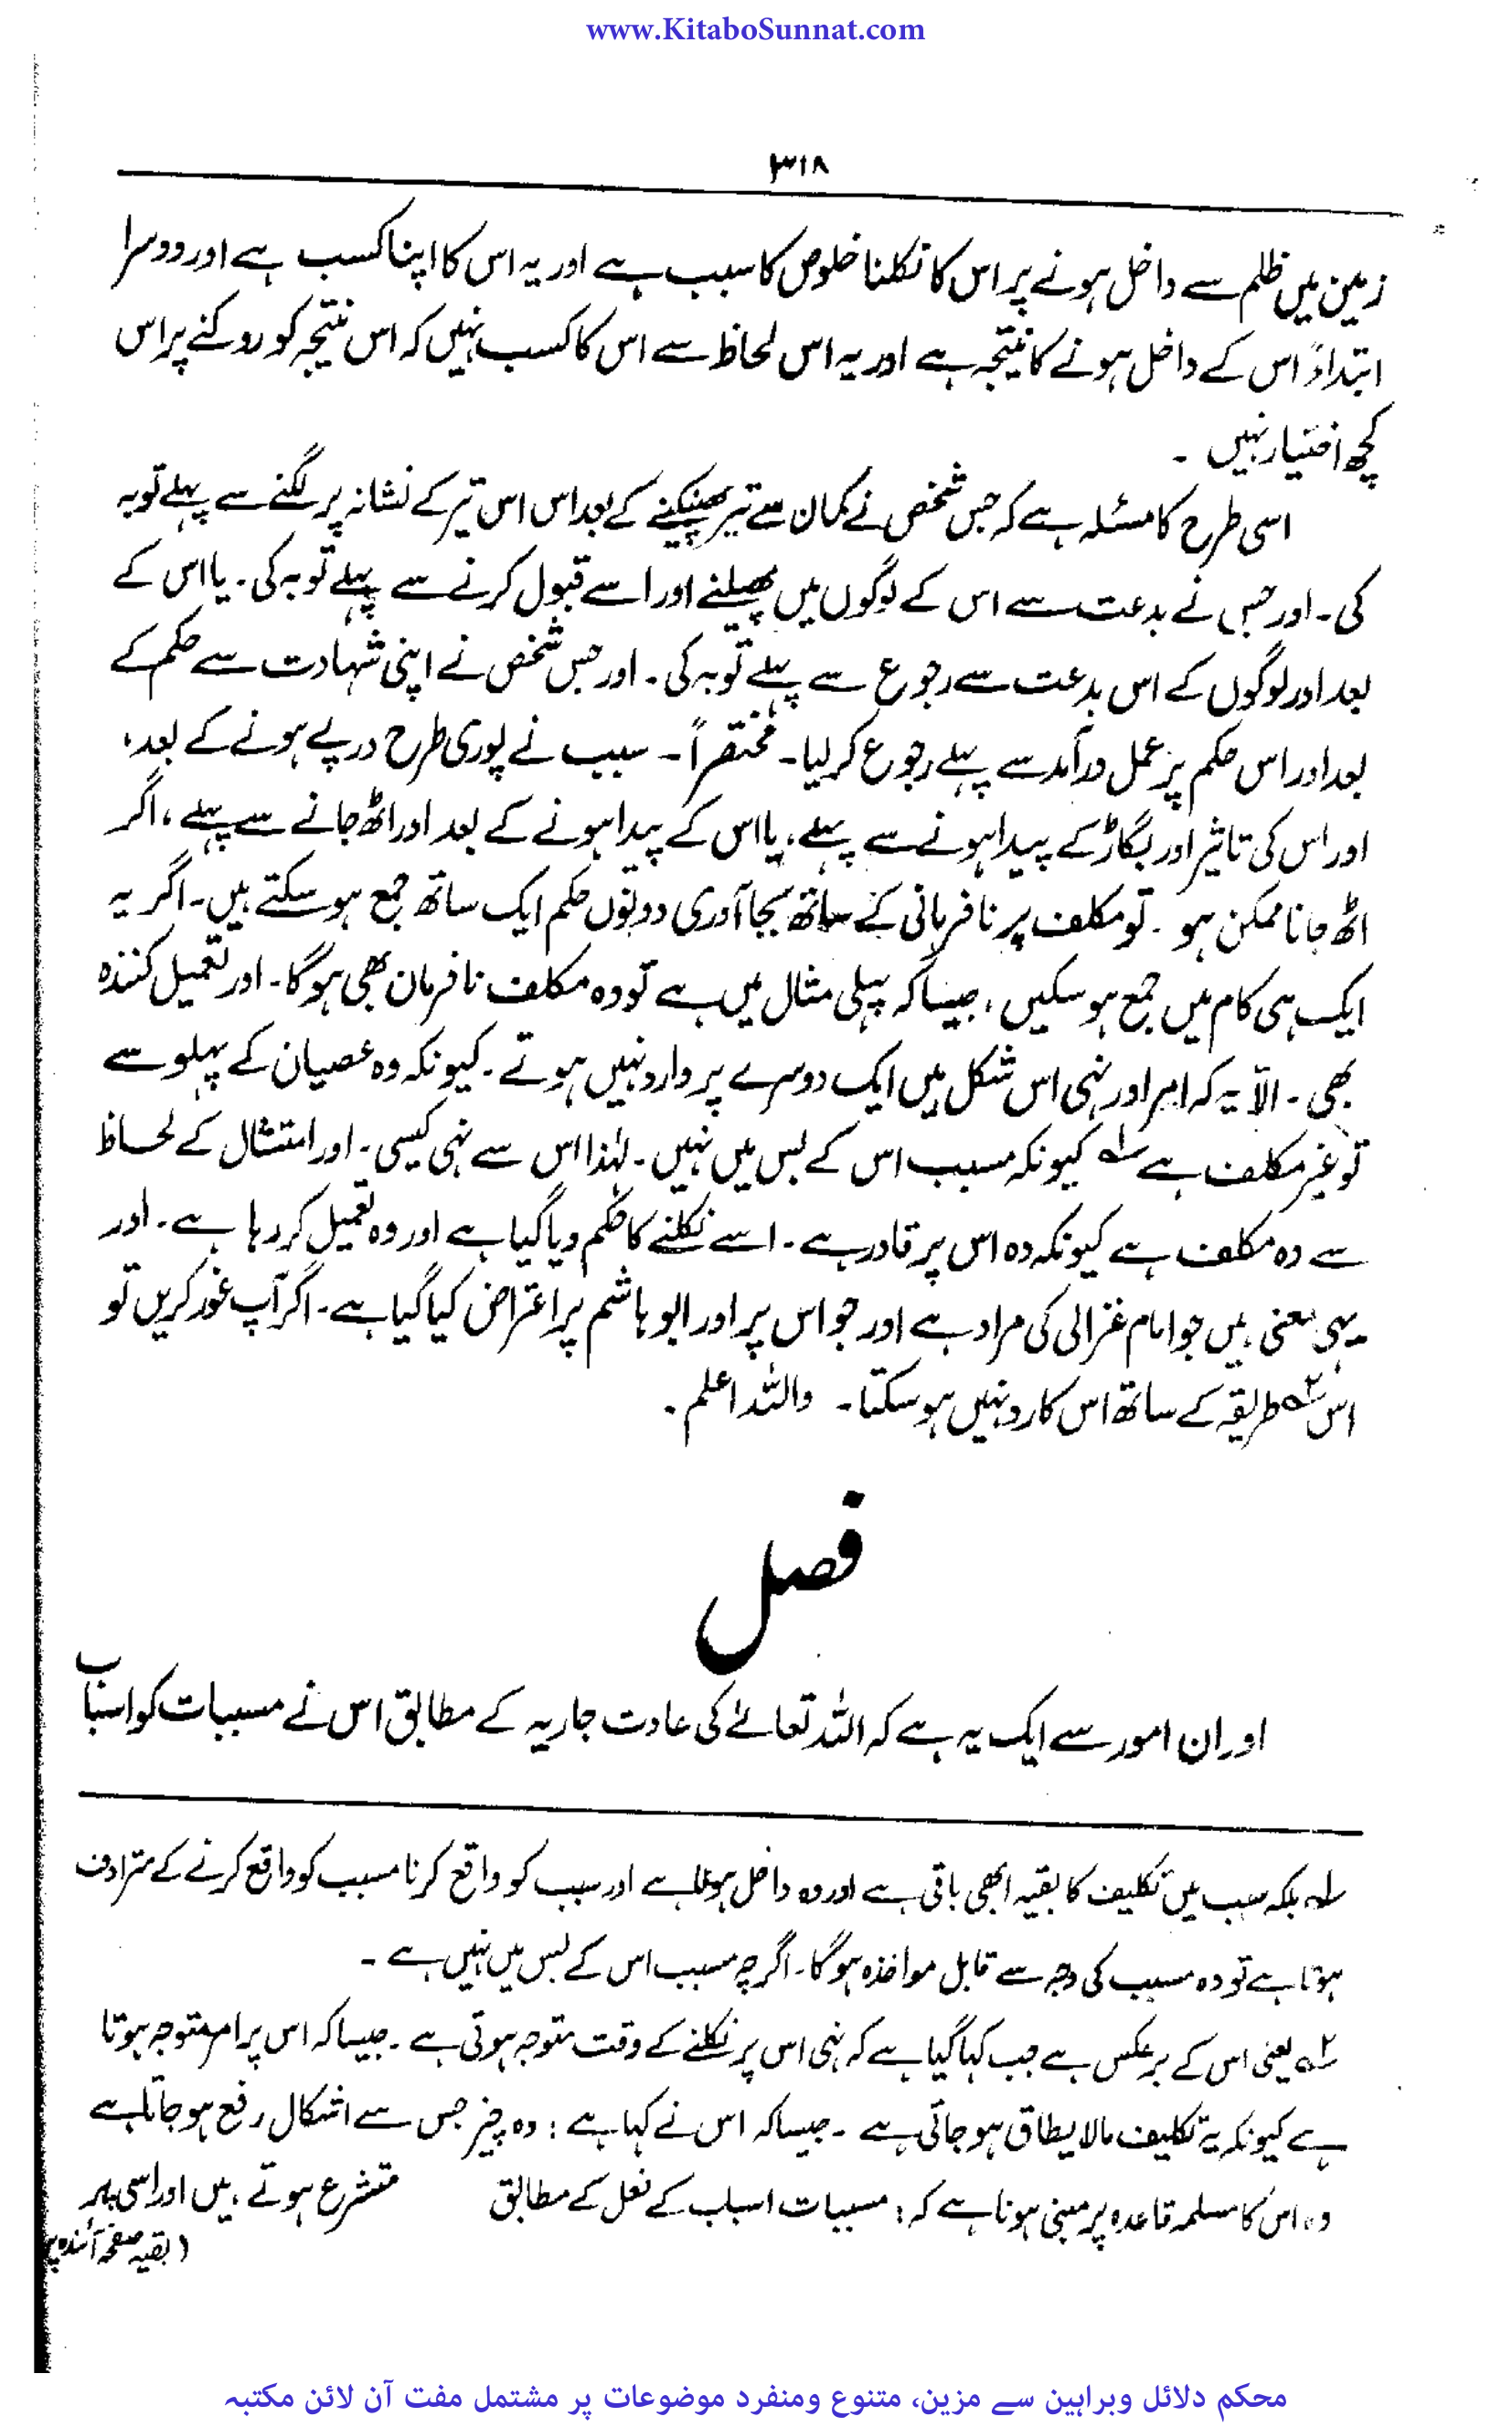 www.KitaboSunnat.com
۳۱۸
زمین میں ظلم سے داخل ہونے پر اس کا نکلنا خلوص کا سبب ہے اور یہ اس کا اپنا کسب ہے اور دوسرا
ابتداءً اس کے داخل ہونے کا نتیجہ ہے اور یہ اس لحاظ سے اس کا کسب نہیں کہ اس نتیجہ کو روکنے پر اس
کچھ اختیار نہیں ۔
اسی طرح کا مسئلہ ہے کہ جس شخص نے کمان سے تیر پھینکنے کے بعد اس اس تیر کے نشانہ پر لگنے سے پہلے توبہ
کی ۔ اور جس نے بدعت سے اس کے لوگوں میں پھیلنے اور اسے قبول کرنے سے پہلے توبہ کی ۔ یا اس کے
بعد اور لوگوں کے اس بدعت سے رجوع سے پہلے توبہ کی ۔ اور جس شخص نے اپنی شہادت سے حکم کے
بعد اور اس حکم پر عمل درآمد سے پہلے رجوع کر لیا ۔ مختصراً ۔ سبب نے پوری طرح درپے ہونے کے بعد،
اور اس کی تاثیر اور بگاڑ کے پیدا ہونے سے پہلے، یا اس کے پیدا ہونے کے بعد اور اٹھ جانے سے پہلے ، اگر
اٹھ جانا ممکن ہو ۔ تو مکلف پر نافرمانی کے ساتھ بجا آوری دونوں حکم ایک ساتھ جمع ہو سکتے ہیں ۔ اگر یہ
ایک ہی کام میں جمع ہو سکیں ، جیسا کہ پہلی مثال میں ہے تو وہ مکلف نافرمان بھی ہوگا ۔ اور تعمیل کنندہ
بھی ۔ الّا یہ کہ امر اور نہی اس شکل میں ایک دوسرے پر وارد نہیں ہوتے ۔ کیونکہ وہ عصیان کے پہلو سے
تو غیر مکلف ہے ؁۱ کیونکہ مسبب اس کے بس میں نہیں ۔ لہٰذا اس سے نہی کیسی ۔ اور امتثال کے لحاظ
سے وہ مکلف ہے کیونکہ وہ اس پر قادر ہے ۔ اسے نکلنے کا حکم دیا گیا ہے اور وہ تعمیل کر رہا ہے ۔ اور
یہی معنی ہیں جو امام غزالی کی مراد ہے اور جو اس پر اور ابو ہاشم پر اعتراض کیا گیا ہے ۔ اگر آپ غور کریں تو
اس ؁۲ طریقہ کے ساتھ اس کا رد نہیں ہو سکتا ۔ واللہ اعلم ۔
فصل
اور ان امور سے ایک یہ ہے کہ اللہ تعالےٰ کی عادت جاریہ کے مطابق اس نے مسببات کو اسباب
؁۱ بلکہ سبب میں تکلیف کا بقیہ ابھی باقی ہے اور وہ داخل ہونا ہے اور سبب کو واقع کرنا مسبب کو واقع کرنے کے مترادف
ہوتا ہے تو وہ مسبب کی وجہ سے قابل مواخذہ ہوگا ۔ اگرچہ مسبب اس کے بس میں نہیں ہے ۔
؁۲ یعنی اس کے برعکس ہے جب کہا گیا ہے کہ نہی اس پر نکلنے کے وقت متوجہ ہوتی ہے ۔ جیسا کہ اس پر امر متوجہ ہوتا
ہے کیونکہ یہ تکلیف مالا یطاق ہو جاتی ہے ۔ جیسا کہ اس نے کہا ہے : وہ چیز جس سے اشکال رفع ہو جاتا ہے
وہ اس کا مسلمہ قاعدہ پر مبنی ہونا ہے کہ : مسببات اسباب کے فعل کے مطابق متشرع ہوتے ہیں اور اسی پر
( بقیہ صفحہ آئندہ پر
محکم دلائل وبراہین سے مزین، متنوع ومنفرد موضوعات پر مشتمل مفت آن لائن مکتبہ